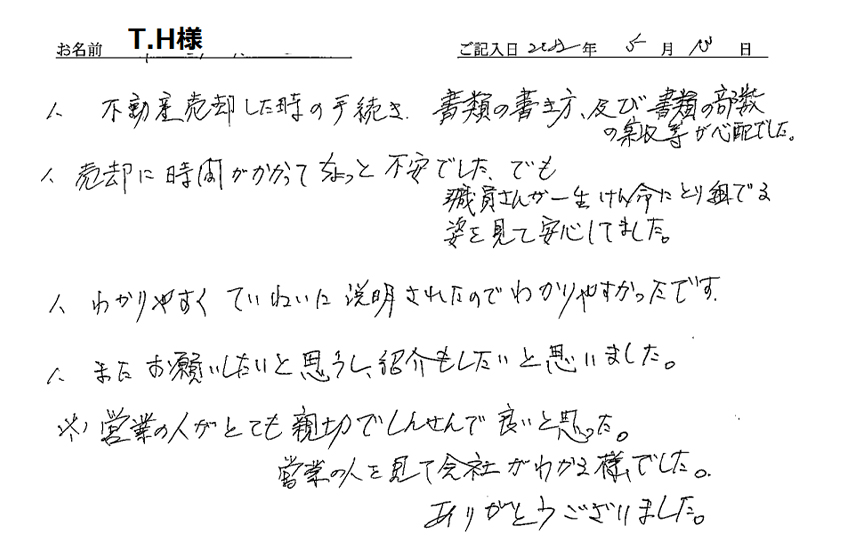 お名前 T.H様 ご記入日 2022年 5月 13日
1、 不動産売却した時の手続き、書類の書き方、及び書類の部数
の案収等が心配でした。
1、 売却に時間がかかってちょっと不安でした、でも
職員さんが一生けん命にとり組でる
姿を見て安心してました。
1、 わかりやすく ていねいに説明されたのでわかりやすかったです.
1、 またお願いしたいと思うし、紹介もしたいと思いました。
※) 営業の人がとても親切でしんせんで良いと思った。
営業の人を見て会社がわかる様でした。
ありがとうございました。